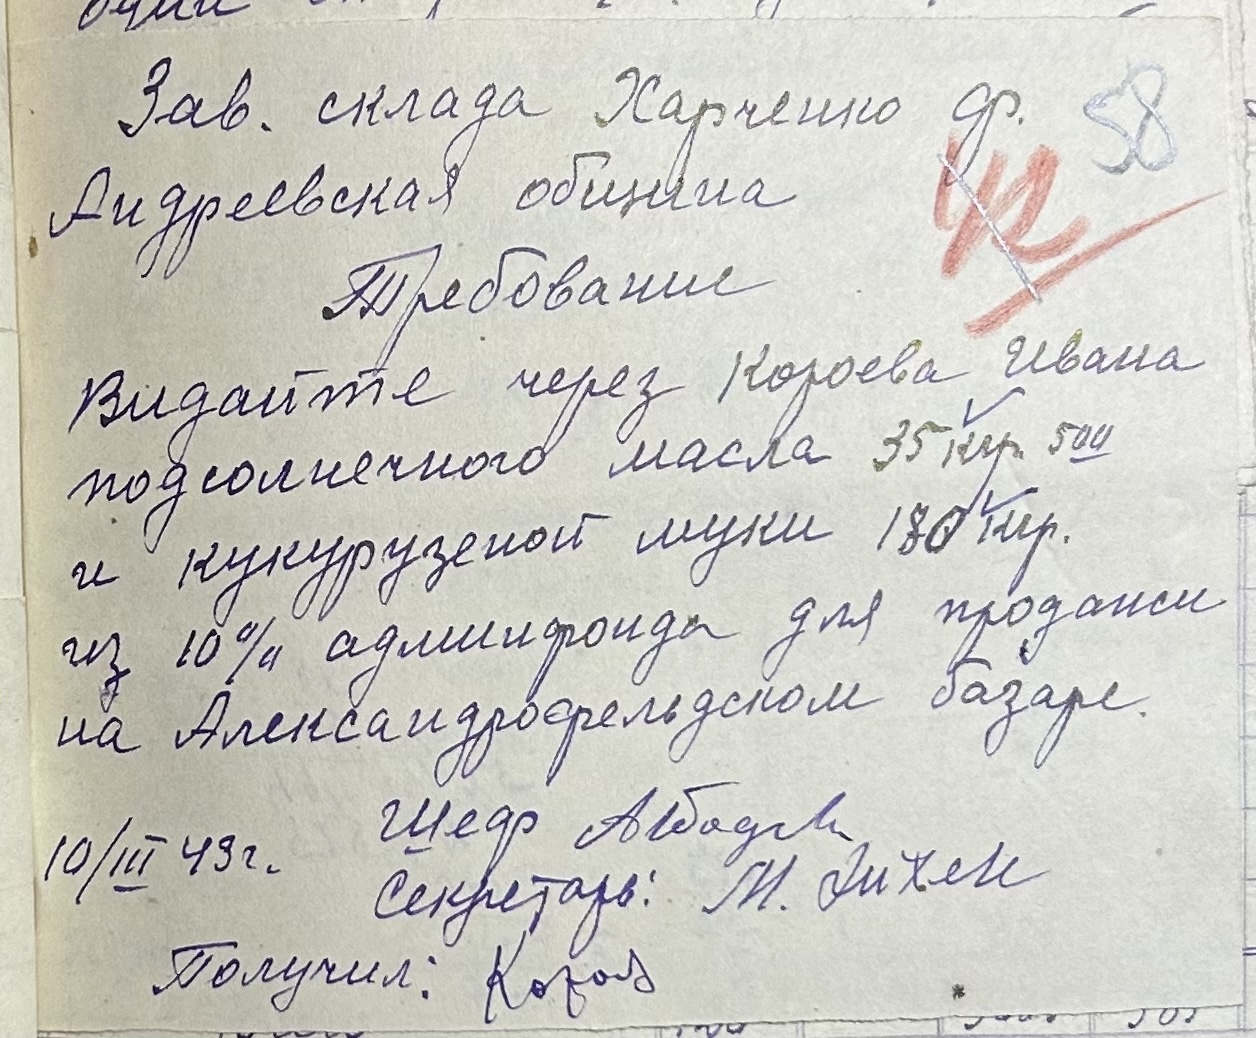 58
Зав. склада Харченко Ф.
Андреевская община
42
Требование
Видайте через Короева Ивана
подсолнечного масла 35 кгр. 500
и кукурузеной муки 180 кгр.
из 10% админфонда для продажи
на Александрфельдском базаре.
10/III 43г. Шеф
Секретарь: М.
Получил: